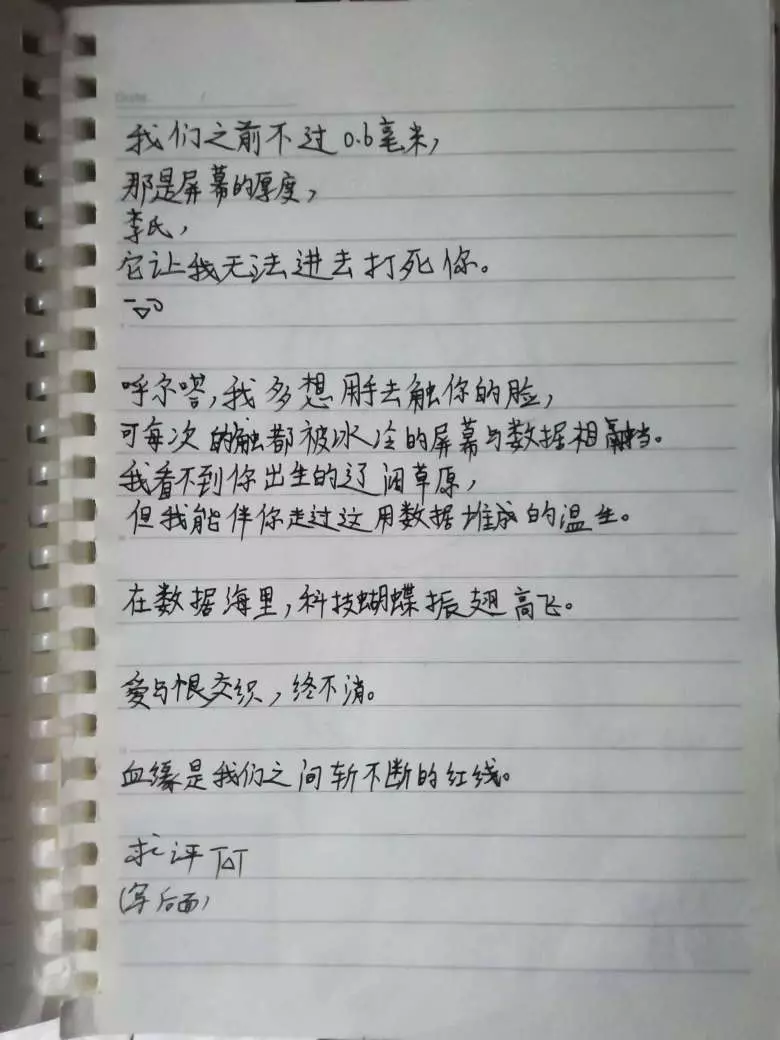 我们之前不过0.6毫米,
那是屏幕的厚度,
李氏,
它让我无法进去打死你。
呼尔嗒,我多想用手去触你的脸,
可每次的触都被冰冷的屏幕与数据相挡。
我看不到你出生的辽阔草原,
但我能伴你走过这用数据堆成的温生。
在数据海里,科技蝴蝶振翅高飞。
爱与恨交织,终不消。
血缘是我们之间斩不断的红线。
求评TAT
(写后面)